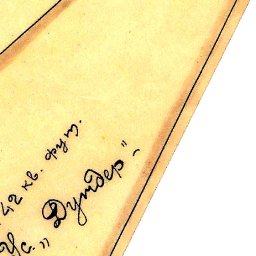 42 кв. фут.
Ус. „Дундер“